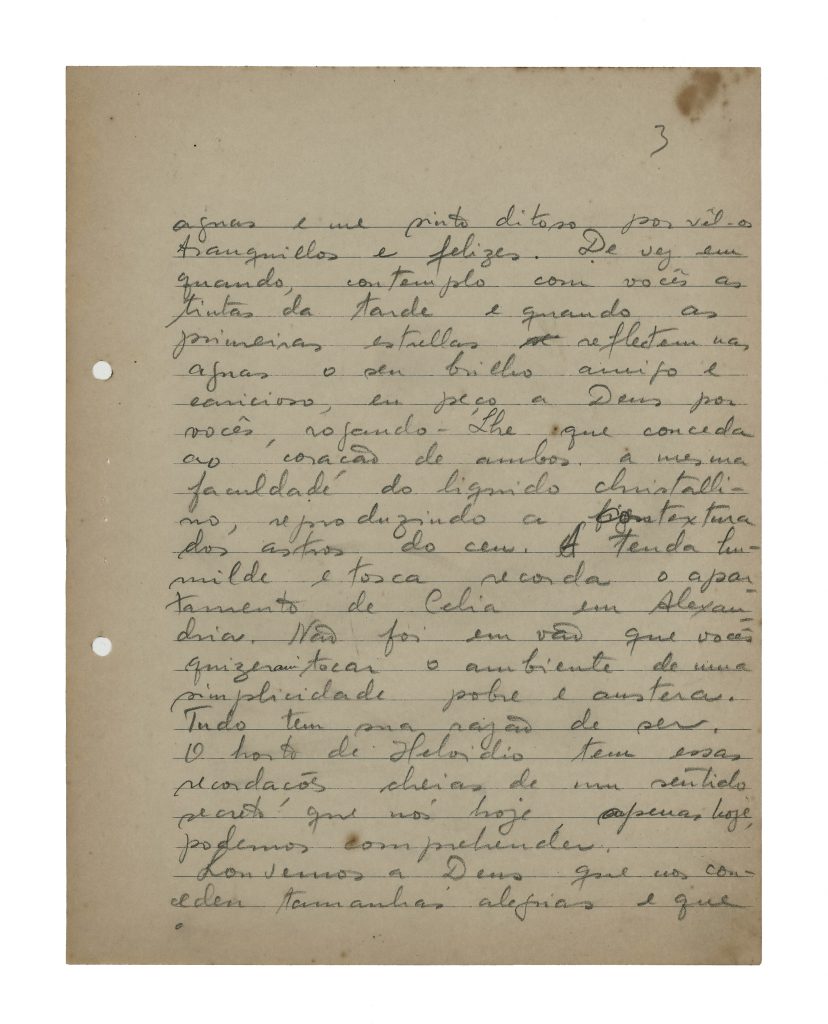 3
aguas e me sinto ditoso por vêl-os
tranquillos e felizes. De vez em
quando, contemplo com vocês as
tintas da tarde e quando as
primeiras estrellas reflectem nas
aguas o seu brilho amigo e
caricioso, eu peço a Deus por
vocês, rogando-Lhe que conceda
ao coração de ambos a mesma
faculdade do liquido christalli-
no, reproduzindo a contextura
dos astros do ceu. A tenda hu-
milde e tosca recorda o apar-
tamento de Celia em Alexan-
dria. Não foi em vão que vocês
quizeram tocar o ambiente de uma
simplicidade pobre e austera.
Tudo tem sua razão de ser.
O horto de Helvidio tem essas
recordações cheias de um sentido
secreto que nós hoje, apenas hoje,
podemos comprehender.
Louvemos a Deus que nos con-
cedeu tamanhas alegrias e que